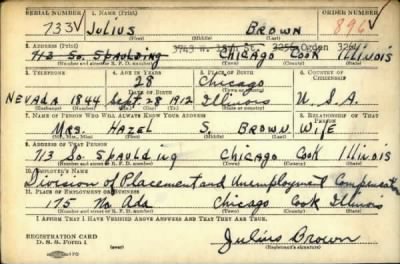 SERIAL NUMBER 1. NAME (Print) ORDER NUMBER
733 Julius Brown 896
(First) (Middle) (Last)
2. ADDRESS (Print) 3743 W. St. 3256 Ogden
713 So. Spaulding Chicago Cook Illinois
(Number and street or R. F. D. number) (Town) (County) (State)
3. TELEPHONE 4. AGE IN YEARS 5. PLACE OF BIRTH 6. COUNTRY OF CITIZENSHIP
28 Chicago
DATE OF BIRTH
Nevada 1844 Sept. 28 1912 Illinois U.S.A.
7. NAME OF PERSON WHO WILL ALWAYS KNOW YOUR ADDRESS 8. RELATIONSHIP OF THAT PERSON
Mrs. Hazel S. Brown Wife
(Mr., Mrs., Miss) (First) (Middle) (Last)
9. ADDRESS OF THAT PERSON
713 So Spaulding Chicago Cook Illinois
(Number and street or R. F. D. number) (Town) (County) (State)
10. EMPLOYER'S NAME
Division of Placement and Unemployment Compensation
11. PLACE OF EMPLOYMENT OR BUSINESS
175 No Ada Chicago Cook Illinois
(Number and street or R. F. D. number) (Town) (County) (State)
I AFFIRM THAT I HAVE VERIFIED ABOVE ANSWERS AND THAT THEY ARE TRUE.
REGISTRATION CARD
D. S. S. Form 1 Julius Brown
(Registrant's signature)